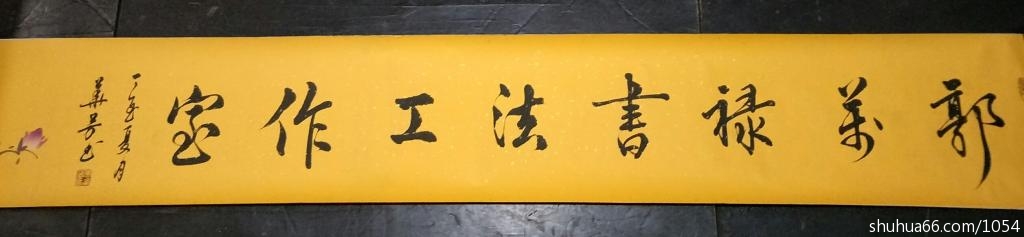 郭萬禄書法工作室
丁酉夏月
華芳书
shuhua66.com/1054